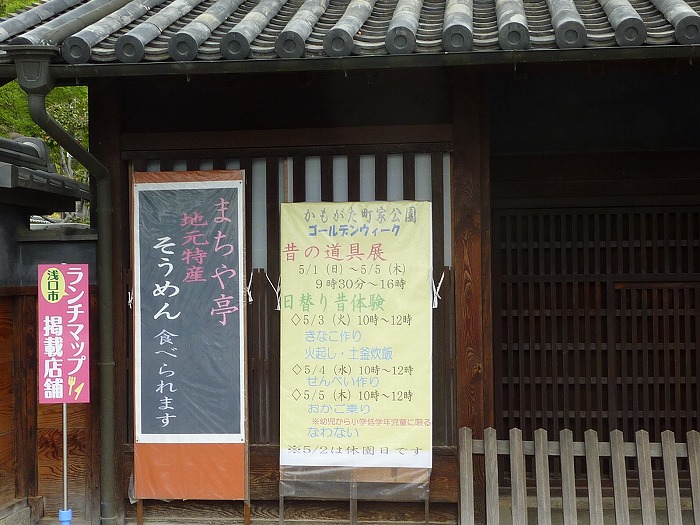 浅口市
ランチマップ
掲載店舗
まちや亭
地元特産
そうめん 食べられます
かもがた町家公園
ゴールデンウィーク
昔の道具展
5/1(日)~5/5(木)
9時30分~16時
日替り昔体験
◇5/3(火)10時~12時
きなこ作り
火起し・土釜炊飯
◇5/4(水)10時~12時
せんべい作り
◇5/5(木)10時~12時
おかご乗り
※幼児から小学低学年児童に限る
なわない
※5/2は休園日です